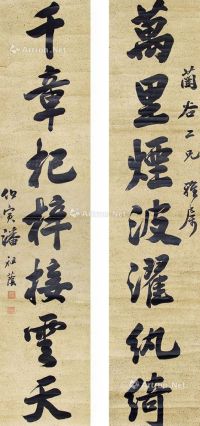 萬里煙波濯紈綺
蘭谷二兄雅屬
千章杞梓接雲天
伯寅潘祖蔭